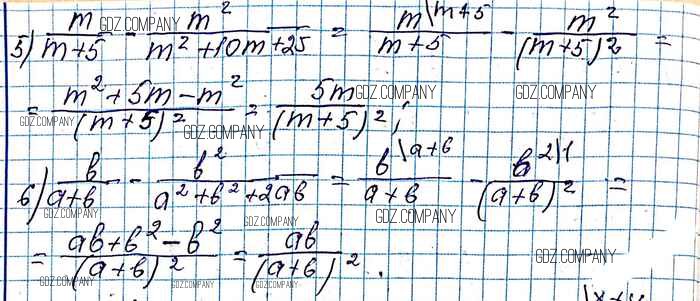 5) m/(m+5) - m²/(m²+10m+25) = m\m+5/(m+5) - m²/(m+5)² =
= (m²+5m-m²)/(m+5)² = 5m/(m+5)²;
6) b/(a+b) - b²/(a²+b²+2ab) = b\a+b/(a+b) - b²\1/(a+b)² =
= (ab+b²-b²)/(a+b)² = ab/(a+b)².
GDZ.COMPANY
GDZ.COMPANY
GDZ.COMPANY
GDZ.COMPANY
GDZ.COMPANY
GDZ.COMPANY
GDZ.COMPANY
GDZ.COMPANY
GDZ.COMPANY
GDZ.COMPANY
GDZ.COMPANY
GDZ.COMPANY